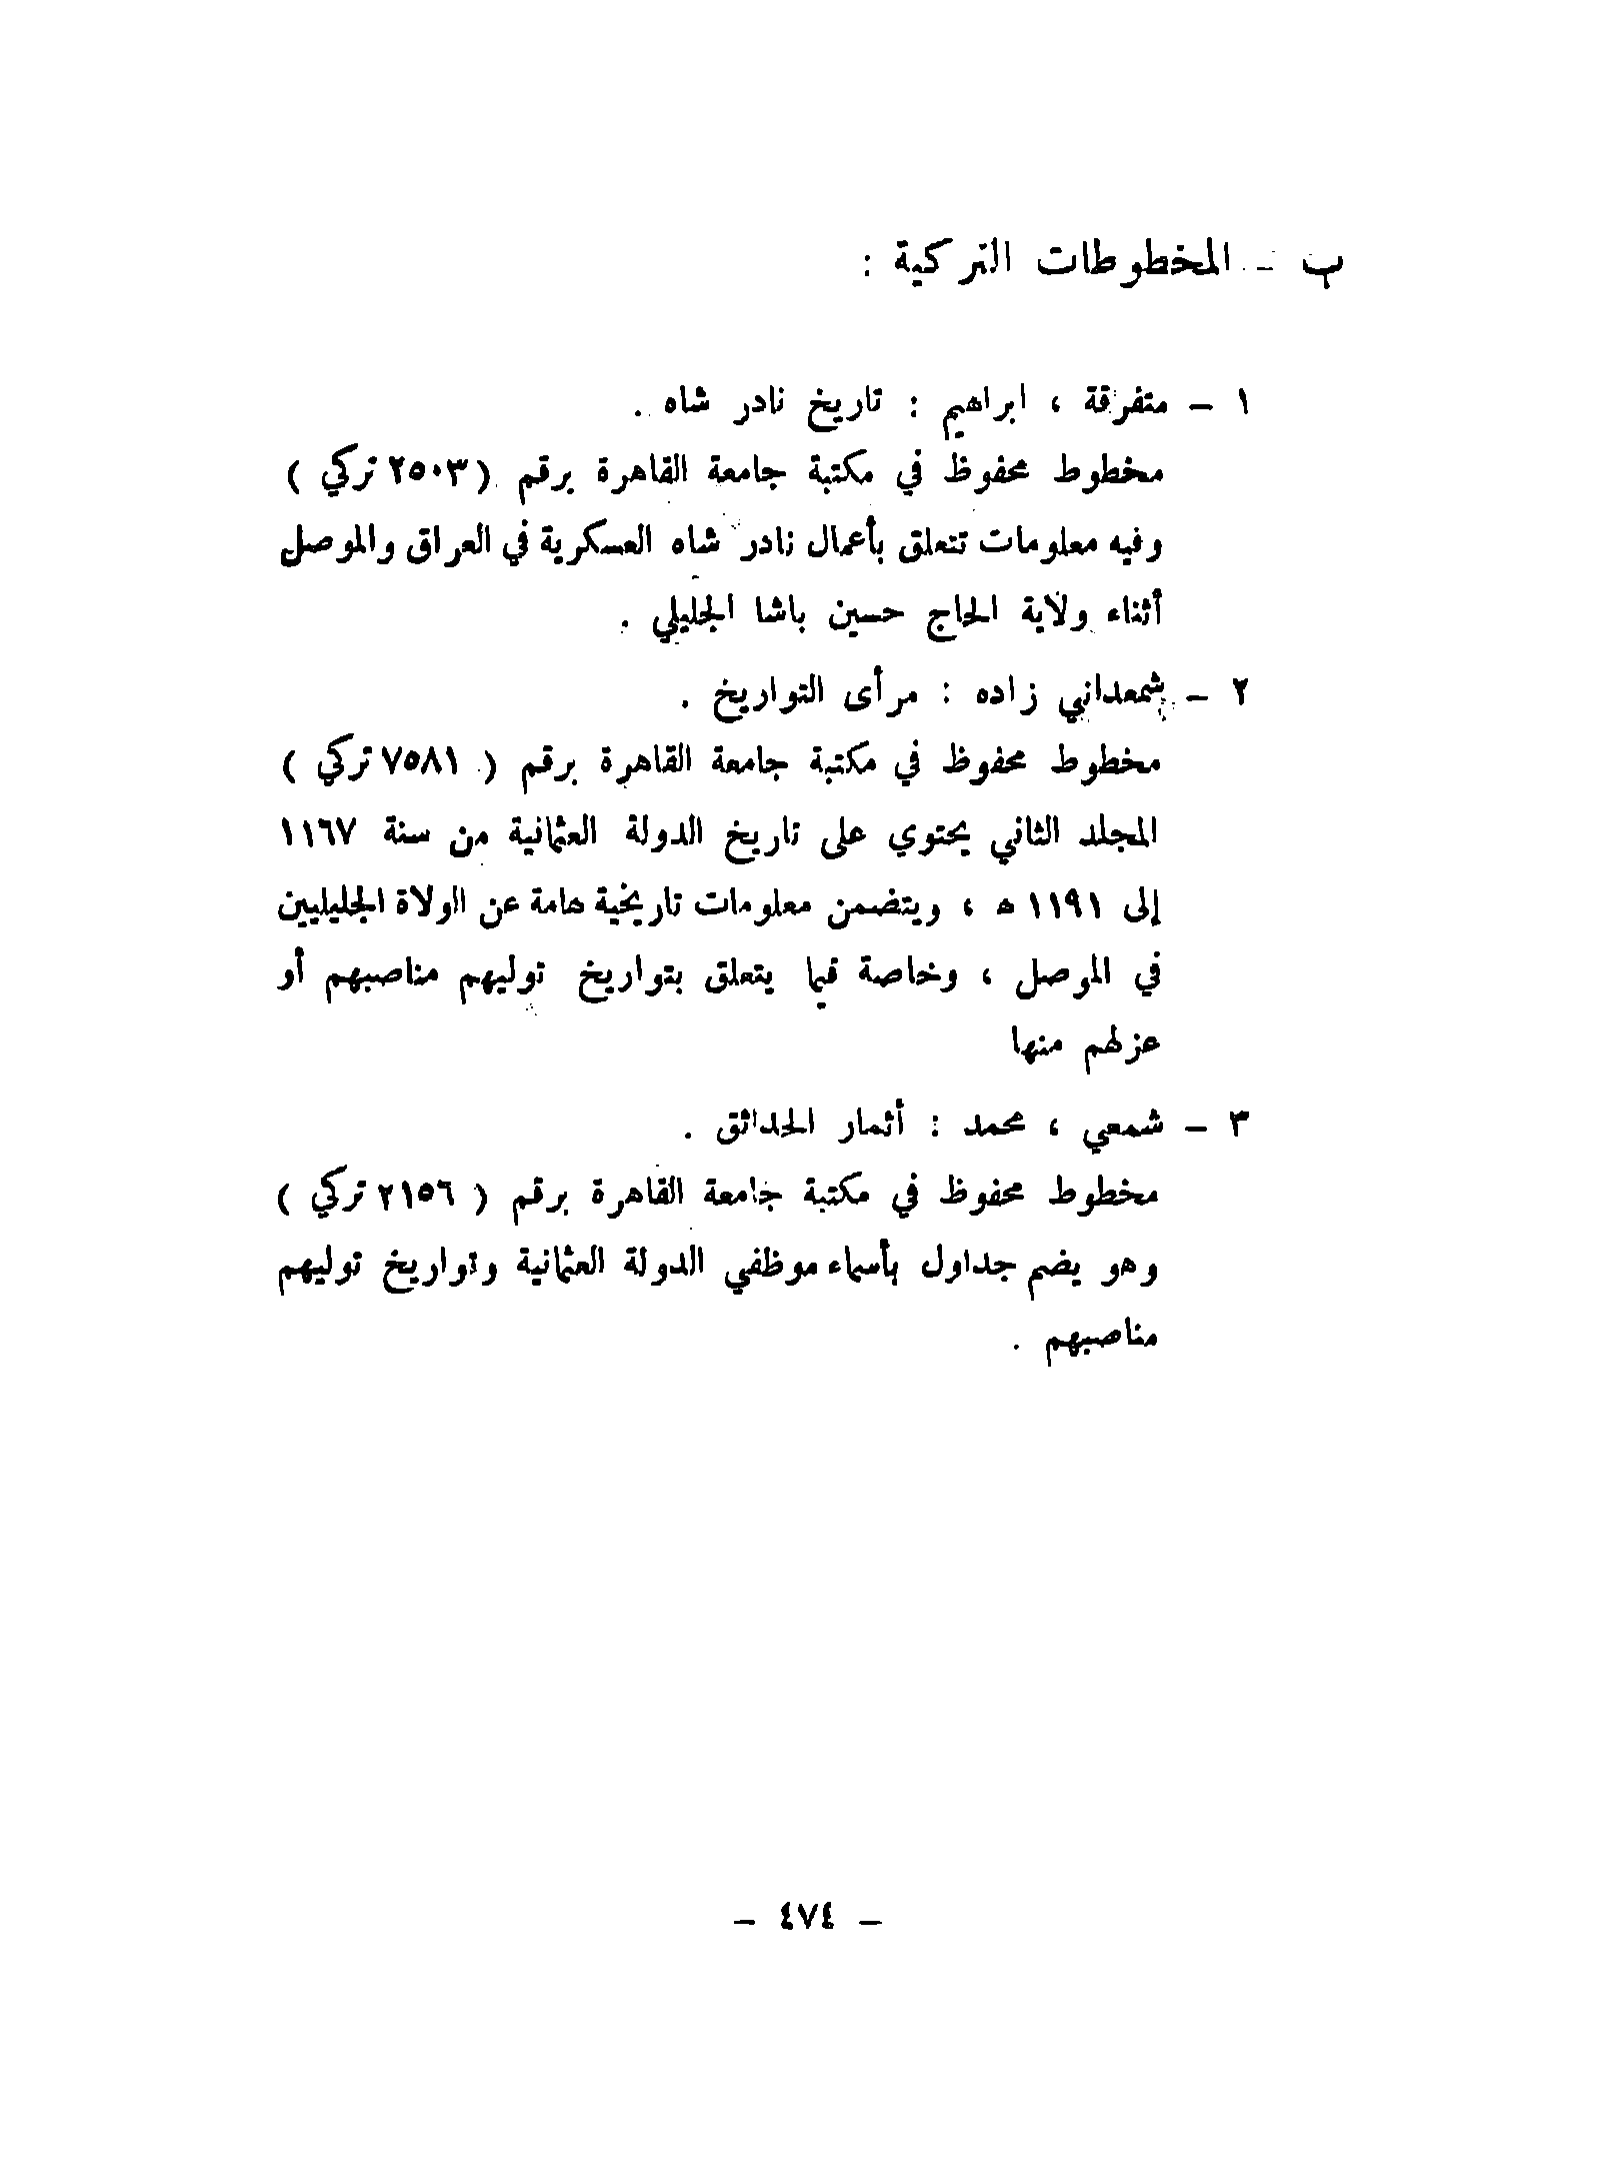 ب - المخطوطات التركية :
١ - متفرقة ، ابراهيم : تاريخ نادر شاه .
مخطوط محفوظ في مكتبة جامعة القاهرة برقم (٢٥٠٣ تركي )
وفيه معلومات تتعلق بأعمال نادر شاه العسكرية في العراق والموصل
أثناء ولاية الحاج حسين باشا الجليلي .
٢ - شمعداني زاده : مرأى التواريخ .
مخطوط محفوظ في مكتبة جامعة القاهرة برقم ( ٧٥٨١ تركي )
المجلد الثاني يحتوي على تاريخ الدولة العثمانية من سنة ١١٦٧
إلى ١١٩١ ه ، ويتضمن معلومات تاريخية هامة عن الولاة الجليليين
في الموصل ، وخاصة فيما يتعلق بتواريخ توليهم مناصبهم أو
عزلهم منها
٣ - شمعي ، محمد : أثمار الحدائق .
مخطوط محفوظ في مكتبة جامعة القاهرة برقم ( ٢١٥٦ تركي )
وهو يضم جداول بأسماء موظفي الدولة العثمانية وتواريخ توليهم
مناصبهم .
- ٤٧٤ -